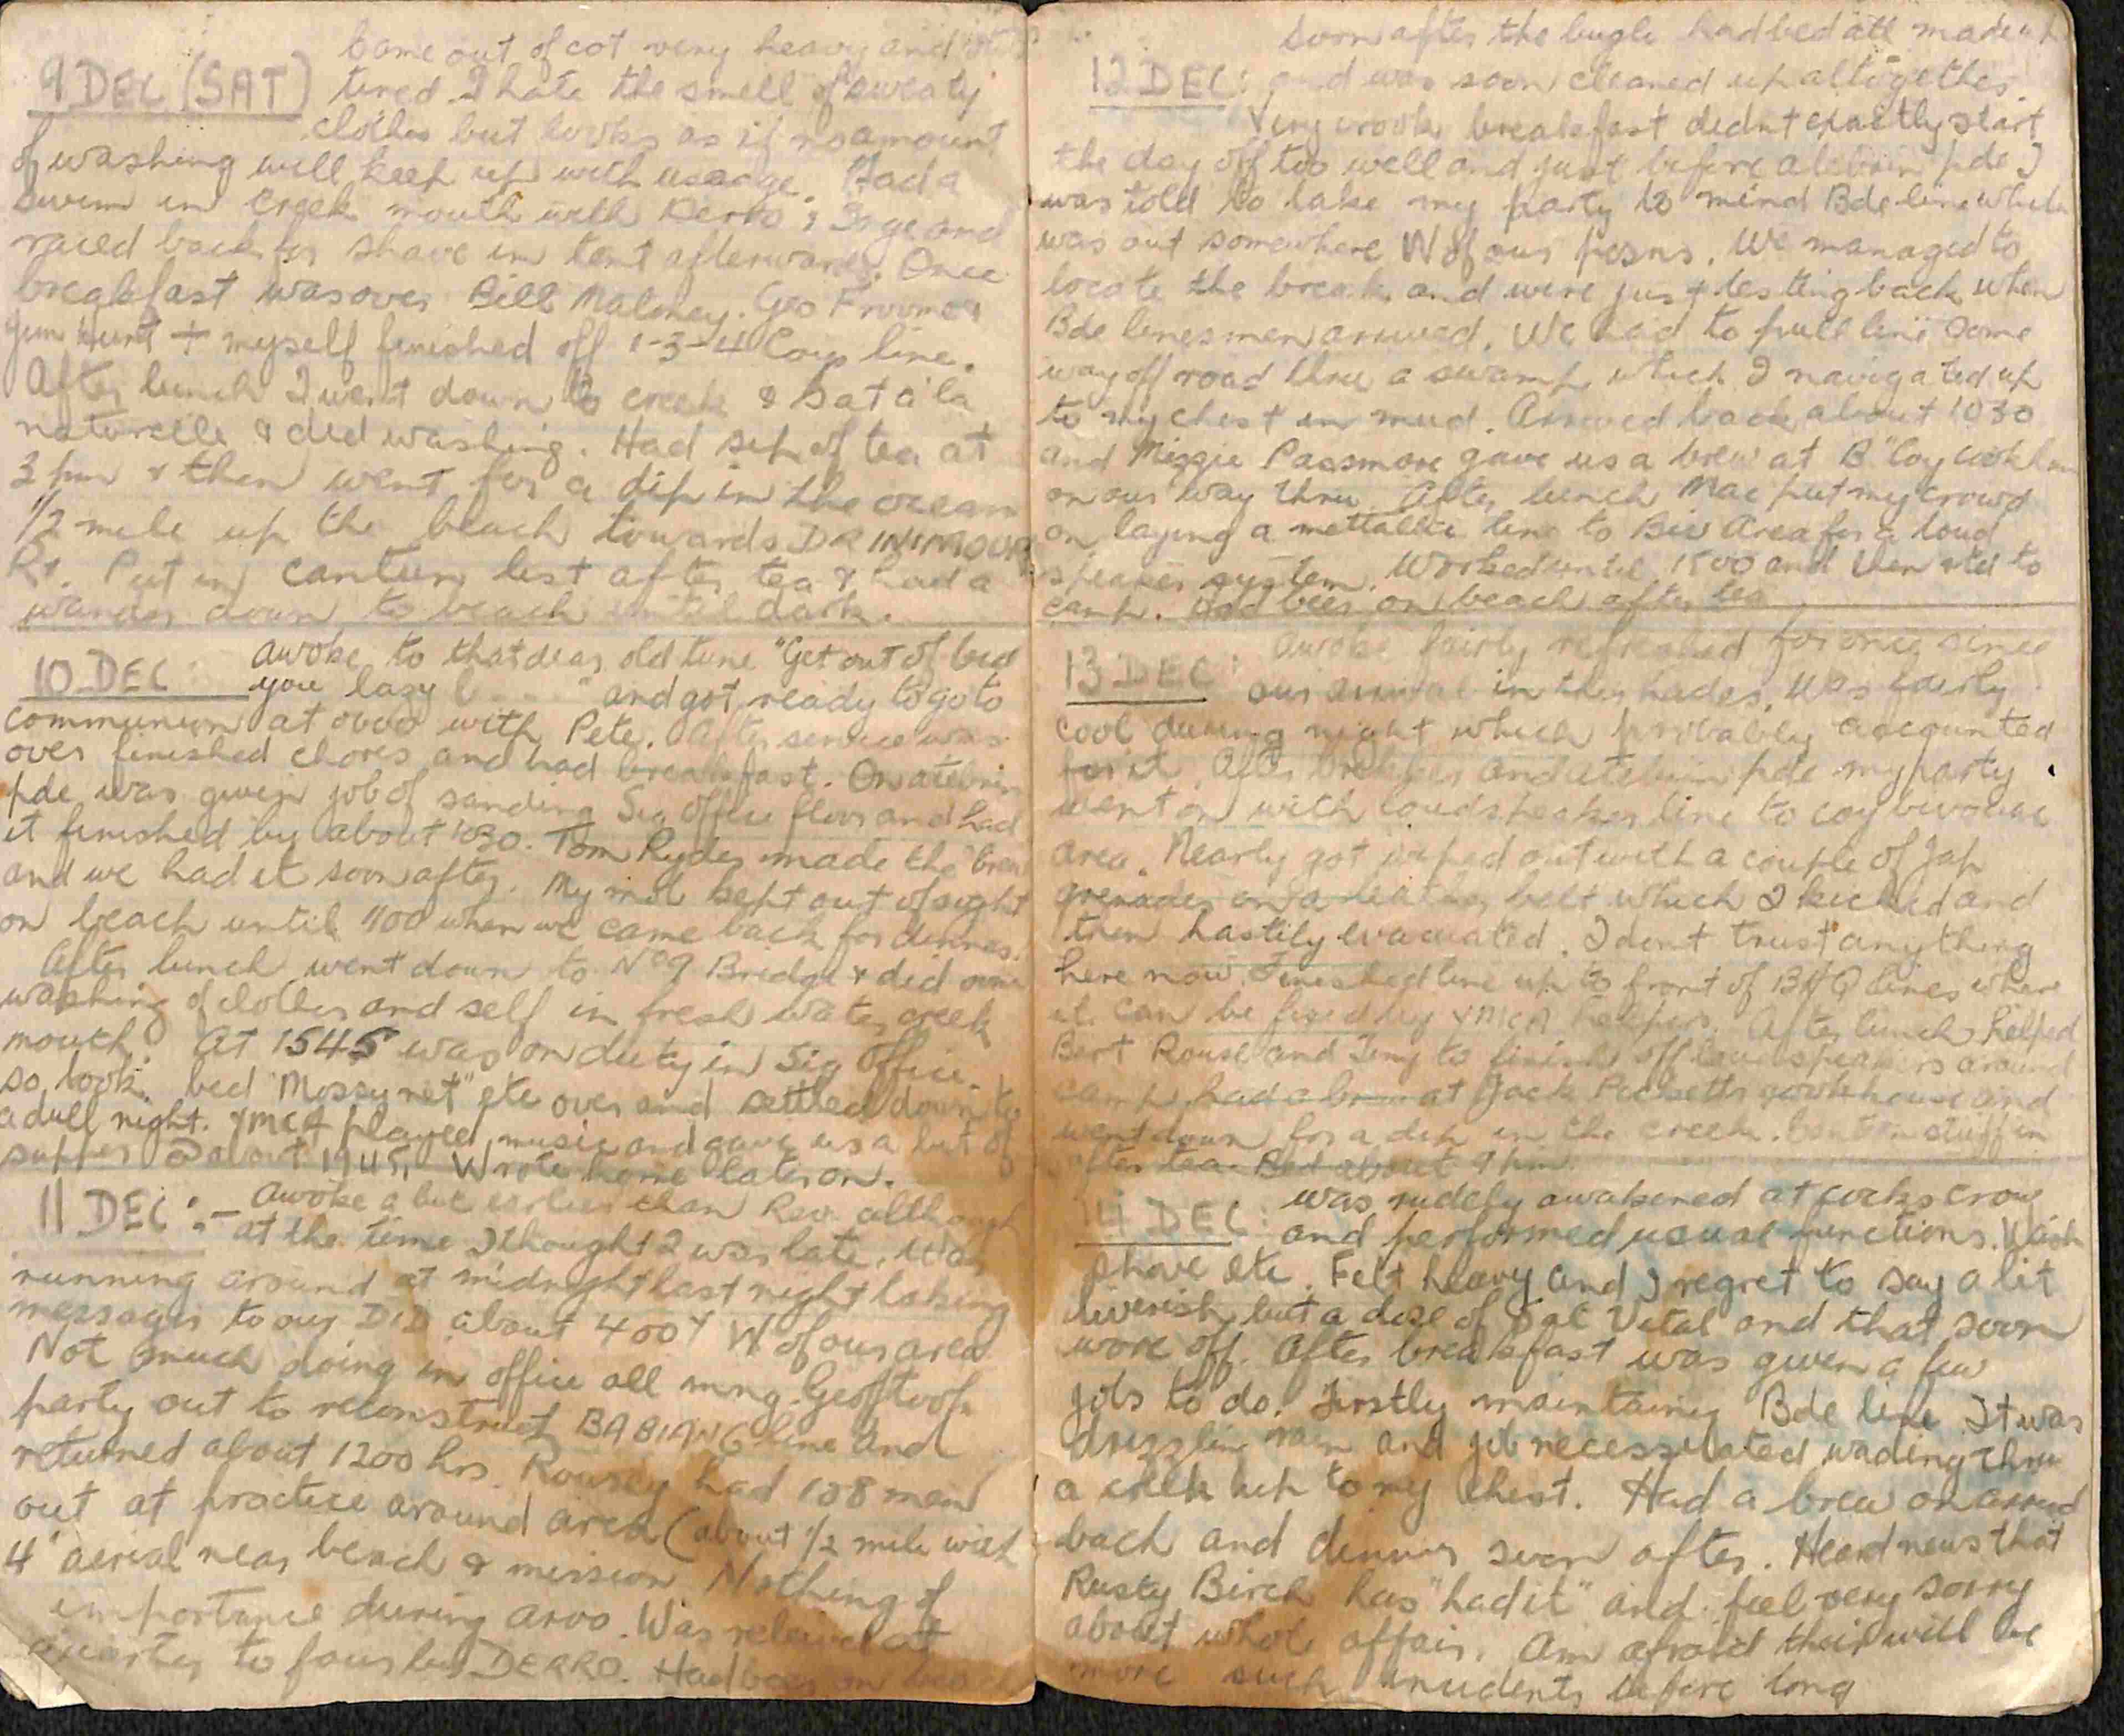 9 DEC (SAT)
Came out of cot very heavy and
tired. I hate the smell of sweaty
clothes but looks as if no amount
of washing will keep up with usage. Had a
swim in creek mouth with Derro & and
raced back for shave in tent afterwards. Once
breakfast was over Bill Maloney. Geo Froome &
Jim Hunt + myself finished off 1-3-4 Coys line.
After lunch I went down to creek & sat a'la
naturelle & did washing. Had sip of tea at
3 pm & then went for a dip in the ocean
1/2 mile up the beach towards DRINIMOUR
Rr. Put in canteen list after tea & had a
wander down to beach until dark.
10 DEC
awoke to that dear old tune "Get out of bed
you lazy b...." and got ready to go to
communion at 0600 with Pete. After service was
over finished chores and had breakfast. On atebrin
pde was given job of sanding Sig office floor and had
it finished by about 1030. Tom Ryder made the brew
and we had it soon after. My mob kept out of sight
on beach until 1100 when we came back for dinner.
After lunch went down to No 9 Bridge & did own
washing of clothes and self in fresh water creek
mouth. At 1545 was on duty in Sig office.
so took bed "Mossy net" etc over and settled down to
a dull night. YMCA played music and gave us a bit of
supper @ about 1945. Wrote home later on.
11 DEC :-
Awoke a bit earlier than Rev. although
at the time I thought I was late. Was
running around at midnight last night taking
messages to our DID about 400Y W of our area
Not much doing in office all mng. Geoff took
party out to reconstruct BABIANG line and
returned about 1200 hrs. Rousey had 108 men
out at practice around area (about 1/2 mile with
4' aerial near beach & mission. Nothing of
importance during arvo. Was relieved at
quarter to four by DERRO. Had beer on beach
12 DEC:
Soon after the bugle had bed all made up
and was soon cleaned up altogether.
Very crook breakfast didnt exactly start
the day off too well and just before atebrin pde I
was told to take my party to mend Bde line which
was out somewhere W of our posns. We managed to
locate the break and were just testing back when
Bde linesmen arrived. We had to pull line some
way off road thru a swamp which I navigated up
to my chest in mud. Arrived back about 1030
and Mizzie Passmore gave us a brew at B "Coy cookhouse
on our way thru. After lunch Mac put my crowd
on laying a mettallic line to Biv Area for a loud
speaker system. Worked until 1500 and then rtd to
camp. Had beer on beach after tea
13 DEC:
Awoke fairly refreshed for once since
our arrival in this hades. Was fairly
cool during night which probably accounted
for it. After brekker and atebrin pde my party
went on with loudspeaker line to coy bivouac
area. Nearly got wiped out with a couple of Jap
grenades on a leather belt which I kicked and
then hastily evacuated. I dont trust anything
here now. Finished line up to front of BHQ lines where
it can be fixed by YMCA helpers. After lunch helped
Bert Rouse and Jimy to finish off loudspeakers around
camp had a brew at Jack Picketts cookhouse and
went down for a dip in the creek. Canteen stuff in
after tea. Bed about 9 pm.
14 DEC:
was rudely awakened at cocks crow
and performed usual functions. Wash
shave etc. Felt heavy and I regret to say a bit
liverish, but a dose of Sal Vital and that soon
wore off. After breakfast was given a few
jobs to do. Firstly maintaining Bde line. It was
drizzling rain and job necessitated wading thru
a creek up to my chest. Had a brew on arrival
back and dinner soon after. Heard news that
Rusty Birch has "had it" and feel very sorry
about whole affair. Am afraid their will be
more such incidents before long